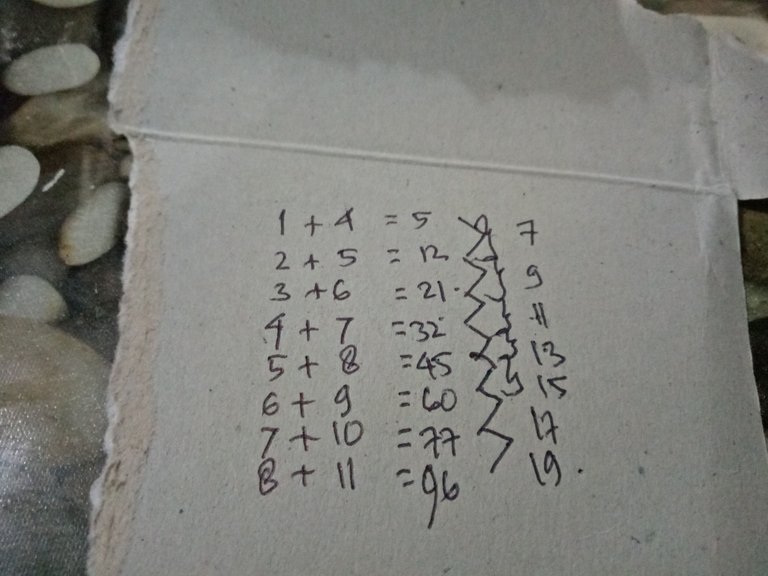 1 + 4 = 5 7
2 + 5 = 12
3 + 6 = 21 9
4 + 7 = 32 11
5 + 8 = 45 13
6 + 9 = 60 15
7 + 10 = 77 17
8 + 11 = 96 19.